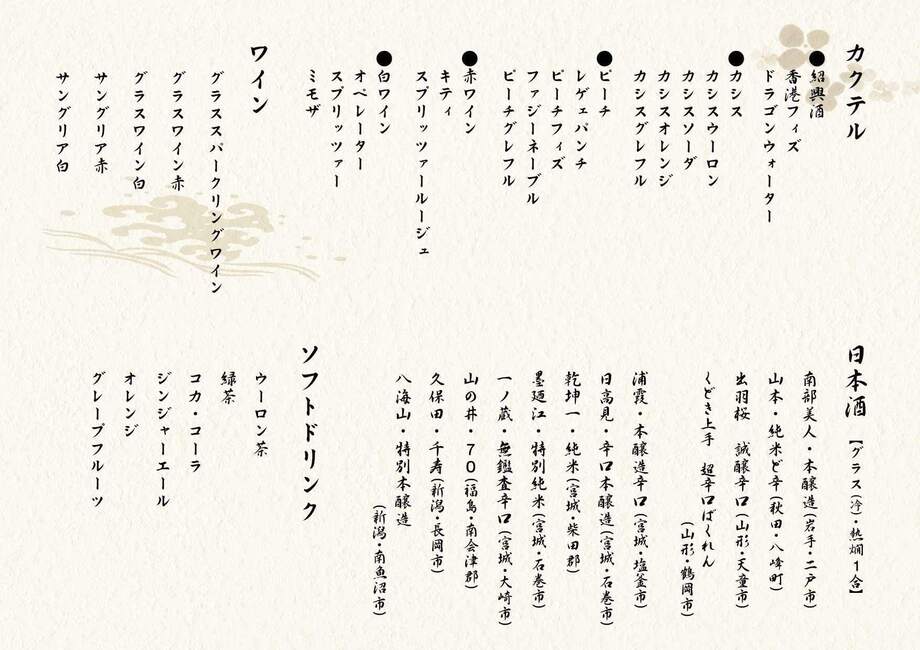 カクテル
●紹興酒
香港フィズ
ドラゴンウォーター
●カシス
カシスウーロン
カシスソーダ
カシスオレンジ
カシスグレフル
●ピーチ
レゲェパンチ
ピーチフィズ
ファジーネーブル
ピーチグレフル
●赤ワイン
キティ
スプリッツァールージュ
●白ワイン
オペレーター
スプリッツァー
ミモザ
ワイン
グラススパークリングワイン
グラスワイン赤
グラスワイン白
サングリア赤
サングリア白
日本酒【グラス(冷)・熱燗1合】
南部美人・本醸造(岩手・二戸市)
山本・純米ど辛(秋田・八峰町)
出羽桜 誠醸辛口(山形・天童市)
くどき上手 超辛口ばくれん
(山形・鶴岡市)
浦霞・本醸造辛口(宮城・塩釜市)
日高見・辛口本醸造(宮城・石巻市)
乾坤一・純米(宮城・柴田郡)
墨廼江・特別純米(宮城・石巻市)
一ノ蔵・無鑑査辛口(宮城・大崎市)
山の井・70(福島・南会津郡)
久保田・千寿(新潟・長岡市)
八海山・特別本醸造
(新潟・南魚沼市)
ソフトドリンク
ウーロン茶
緑茶
コカ・コーラ
ジンジャーエール
オレンジ
グレープフルーツ